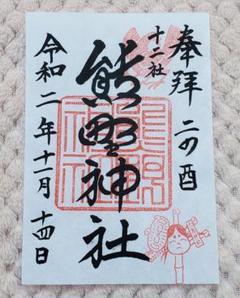 奉拝 二の酉
十二社
熊野神社
令和二年十一月十四日